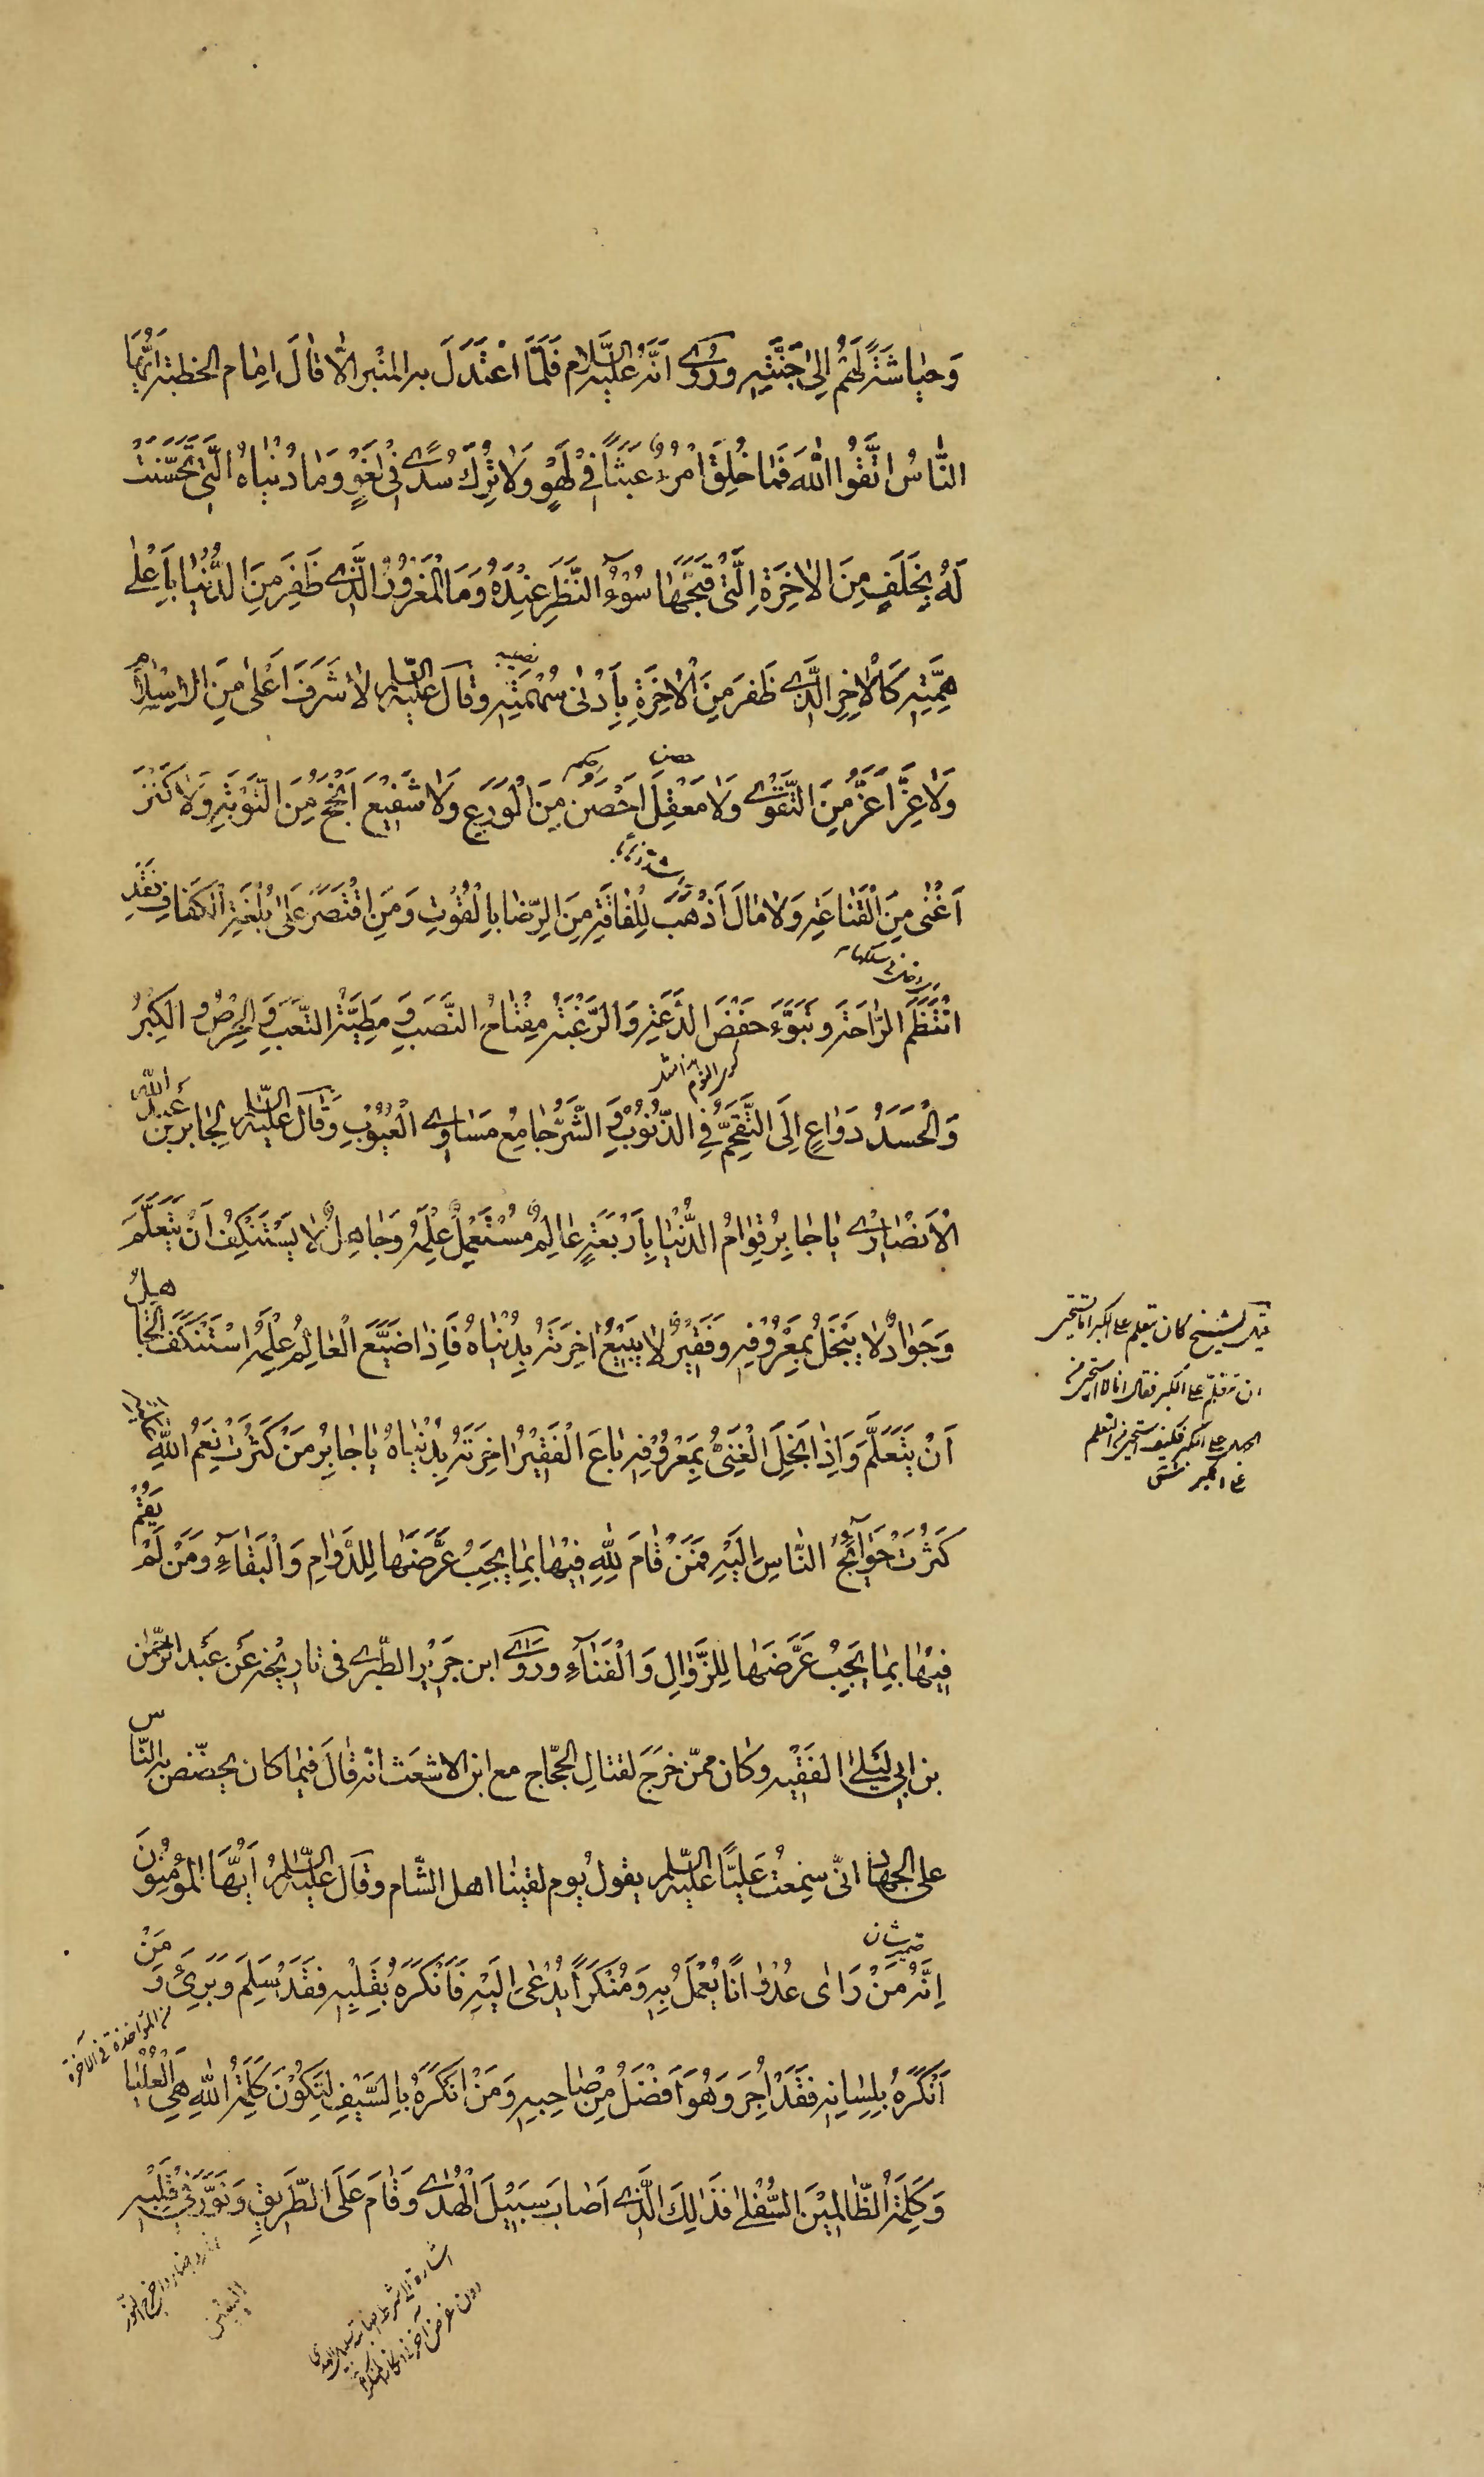 وَحِيَاشَةً لَهُمْ اِلىٰ جَنَّتِهِ وَرُوِىَ اَنَّهُ عَلَيْهِ السَّلَام فَلَّمَا اعْتَدَلَ بِهِ الْمِنْبَرُ اِلّٰا قٰالَ اَمٰام الخطبَةِ اَيُّهَا
النّٰاسُ اتَّقُوا اللّٰهَ فَمٰا خُلِقَ امْرُءٌ عَبَثًا فِى لَهْوٍ وَلٰا تُرِكَ سُدًى فى لَغْوٍ وَمٰا دُنْيٰاهُ الَّتى تَحَسَّنَتْ
لَهُ بِخَلَفٍ مِنَ الْاٰخِرَةِ الَّتى قَبَّحَهٰا سُوْءُ النَّظَرِ عِنْدَهُ وَمَا الْمَغْرُوْرُ الَّذى ظَفِرَ مِنَ الدُّنْيٰا بِاَعْلىٰ
نصيبه
هِمَّتِهِ كَالْاٰخِرِ الَّذى ظَفِرَ مِنَ الْاٰخِرَةِ بِاَدْنىٰ سُهْمَتِهِ وَقٰالَ عَلَيْهِ السَّلٰم لٰا شَرَفَ اَعْلىٰ مِنَ الْاِسْلٰامِ
حصن
وَلٰا عِزَّ اَعَزُّ مِنَ التَّقْوٰى وَلٰا مَعْقِلَ اَحْصَن مِنَ الْوَرَعِ وَلٰا شَفِيْعَ اَنْجَحُ مِنَ التَّوْبَةِ وَلٰا كَنْزَ
اَغْنىٰ مِنَ الْقَنٰاعَةِ وَلٰا مٰالَ اَذْهَبُ لِلْفٰاقَةِ مِنَ الرِّضٰا بِالْقُوْتِ وَمَنِ اقْتَصَرَ عَلىٰ بُلْغَةِ الْكَفٰافِ فَقَدِ
انْتَظَمَ الرّٰاحَةَ وَتَبَوَّءَ خَفْضَ الدَّعَةِ وَالرَّغْبَةُ مِفْتٰاحُ النَّصَبِ وَ مَطِيَّةُ التَّعَبِ وَ الْحِرْصُ وَ الْكِبْرُ
وَالْحَسَدُ دَوٰاعٍ اِلَى التَّقَحُّمِ فِى الذُّنُوْبِ وَ الشَّرُّ جٰامِعُ مَسٰاوِى الْعُيُوْبِ وَقٰالَ عَلَيْهِ السَّلٰم لِجٰابِرِ بْنِ عَبْدِ اللّٰهِ
الْاَنْصٰارِىّ يٰا جٰابِرُ قِوٰامُ الدُّنْيٰا بِاَرْبَعَةٍ عٰالِمٌ مُسْتَعْمِلٌ عِلْمَهُ وَجٰاهِلٌ لٰا يَسْتَنْكِفُ اَنْ يَتَعَلَّمَ
وَجَوٰادٌ لٰا يَبْخَلُ بِمَعْرُوْفِهِ وَفَقِيْرٌ لٰا يَبِيْعُ اٰخِرَتَهُ بِدُنْيٰاهُ فَاِذٰا ضَيَّعَ الْعٰالِمُ عِلْمَهُ اسْتَنْكَفَ الْجٰاهِلُ
اَنْ يَتَعَلَّمَ وَاِذٰا بَخِلَ الْغَنِىُّ بِمَعْرُوْفِهِ بٰاعَ الْفَقِيْرُ اٰخِرَتَهُ بِدُنْيٰاهُ يٰا جٰابِرُ مَنْ كَثُرَتْ نِعَمُ اللّٰهِ
كَثُرَتْ حَوٰائِجُ النّٰاسِ اِلَيْهِ فَمَنْ قٰامَ لِلّٰهِ فِيْهٰا بِمٰا يَجِبُ عَرَّضَهٰا لِلدَّوٰامِ وَالْبَقٰاءِ وَمَنْ لَمْ يَقُمْ
فِيْهٰا بِمٰا يَجِبُ عَرَّضَهٰا لِلزَّوٰالِ وَالْفَنٰاءِ وَرَوٰى ابن جَرِيْر الطّبرى فى تاريخه عَن عَبد الرّحْمٰن
بن ابي لَيْلىٰ الفَقِيْه وكان ممّن خرَجَ لقتالِ الحَجّاج مع ابن الاشعَث انّه قالَ فيما كان يحضّض به النّاس
على الجهاد انّى سَمِعْتُ عَلِيًّا عَلَيْهِ السَّلٰم يقولُ يوم لقينا اهل الشّام وقٰالَ عَلَيْهِ السَّلٰمُ اَيُّهَا الْمُؤْمِنُوْنَ
اِنَّهُ مَنْ رَاٰى عُدْوٰانًا يُعْمَلُ بِهِ وَ مُنْكَرًا يُدْعىٰ اِلَيْهِ فَاَنْكَرَهُ بِقَلْبِهِ فَقَدْ سَلِمَ وَ بَرِئَ وَ مَنْ
من المؤاخذة فى الآخرة
اَنْكَرَهُ بِلِسٰانِهِ فَقَدْ اُجِرَ وَهُوَ اَفْضَلُ مِنْ صٰاحِبِهِ وَمَنْ اَنْكَرَهُ بِالسَّيْفِ لِتَكُوْنَ كَلِمَةُ اللّٰهِ هِىَ الْعُلْيٰا
وَكَلِمَةُ الظّٰالِمِيْنَ السُّفْلىٰ فَذٰلِكَ الَّذى اَصٰابَ سَبِيْلَ الْهُدٰى وَقٰامَ عَلَى الطَّرِيْقِ وَنَوَّرَ فِى قَلْبِهِ
اليقين